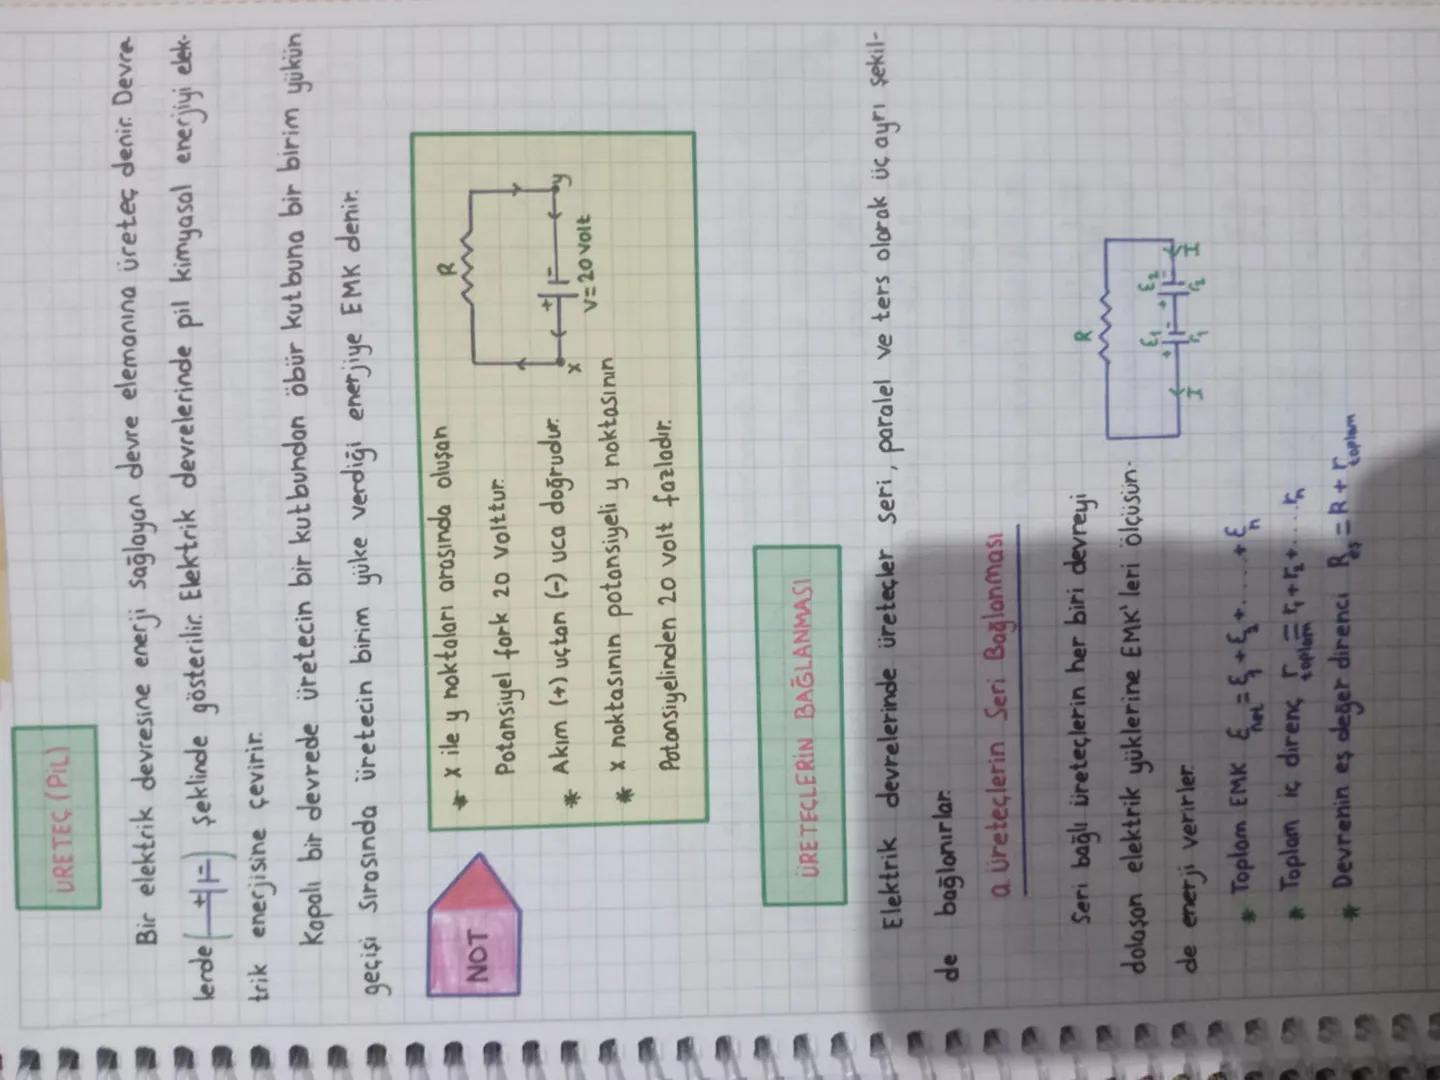 ÜRETEÇ (PİL)
Bir elektrik devresine enerji sağlayan devre elemanına üreteç denir. Devre
lerde (+ -) şeklinde gösterilir. Elektrik devrelerinde pil kimyasal enerjiyi elek-
trik enerjisine çevirir.
Kapalı bir devrede üretecin bir kutbundan öbür kutbuna bir birim yükün
geçişi sırasında üretecin birim yüke verdiği enerjiye EMK denir.
NOT
* X ile y noktaları arasında oluşan
Potansiyel fark 20 volttur.
* Akım (+) uçtan (-) uca doğrudur.
* X noktasının potansiyeli y noktasının
Potansiyelinden 20 volt fazladır.
R
+ -
x y
V=20 volt
ÜRETEÇLERİN BAĞLANMASI
Elektrik devrelerinde üreteçler seri, paralel ve ters olarak üç ayrı şekil-
de bağlanırlar.
a. Üreteçlerin Seri Bağlanması
Seri bağlı üreteçlerin her biri devreyi
dolaşan elektrik yüklerine EMK'leri ölçüsün-
de enerji verirler.
R
+ ε₁ - + ε₂ -
I r₁ r₂ I
* Toplam EMK ε_net = ε₁ + ε₂ + ..... + ε_n
* Toplam iç direnç r_toplam = r₁ + r₂ + ..... r_n
* Devrenin eş değer direnci R_eş = R + r_toplam